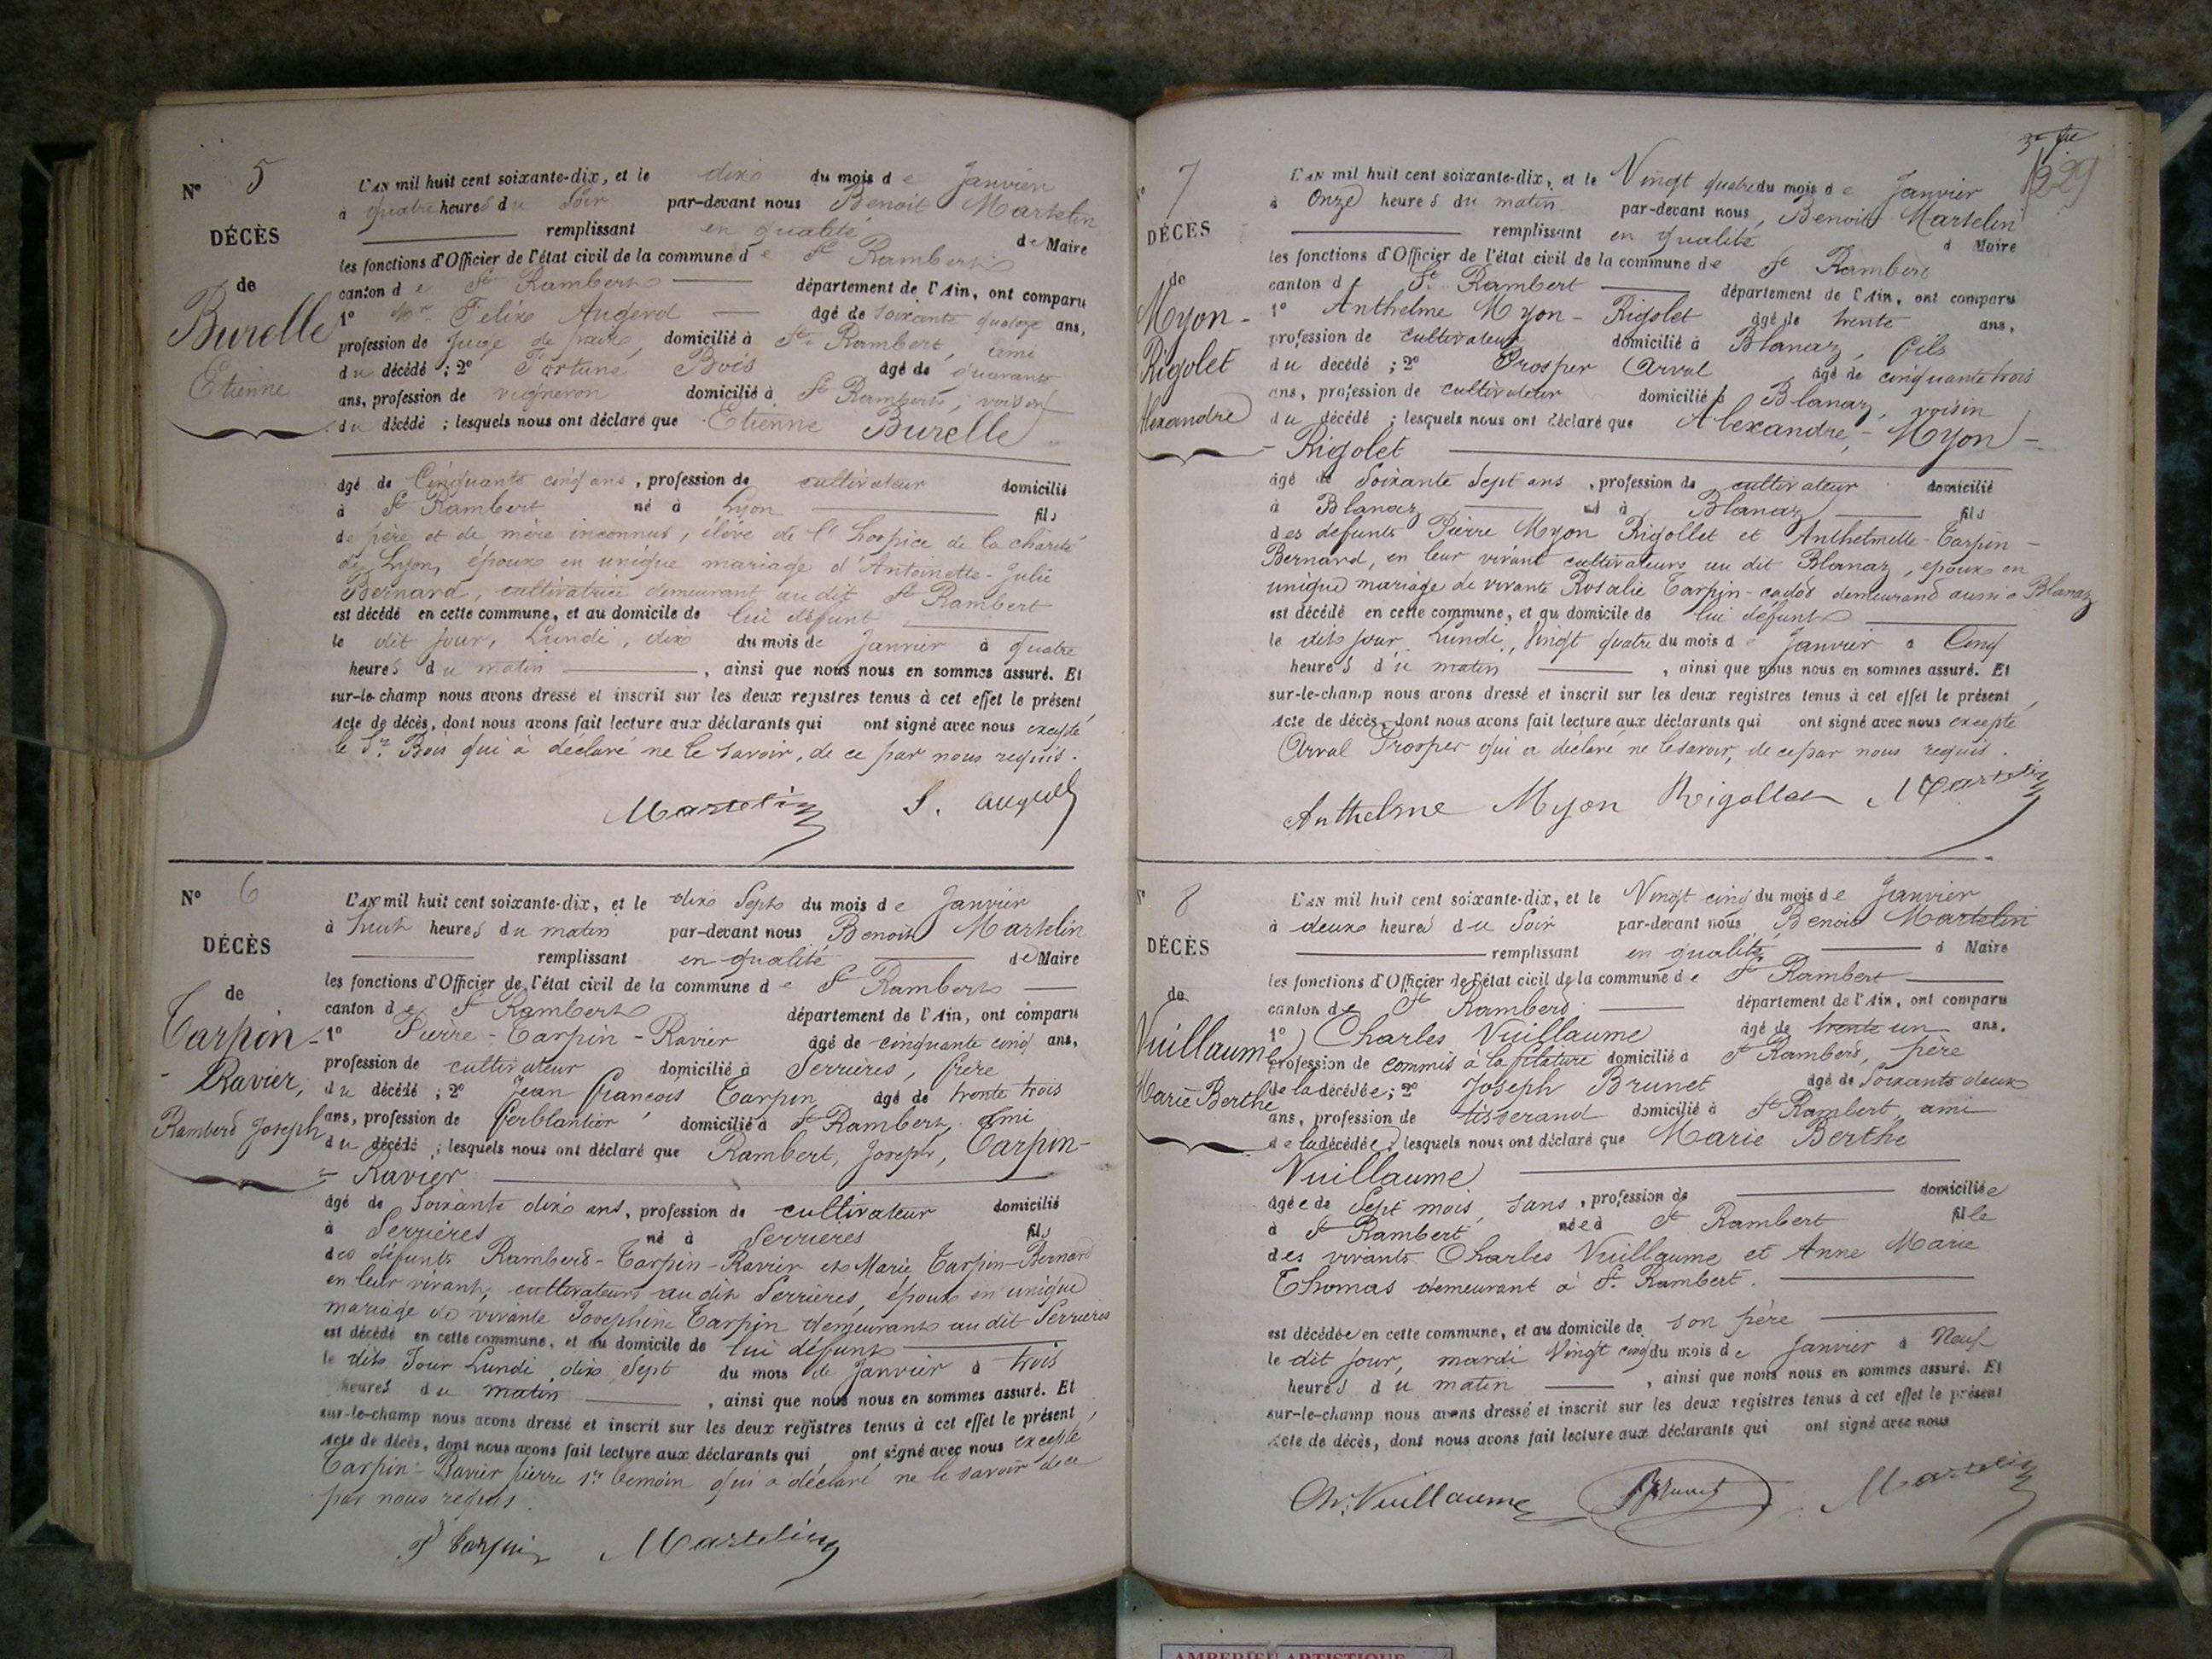 N° 5
DÉCÈS
de
Burelle
Etienne
L'AN mil huit cent soixante-dix, et le dix du mois de Janvier
à quatre heures du Soir par-devant nous Benoit Martelin
remplissant en qualité de Maire
les fonctions d'Officier de l'état civil de la commune de St Rambert
canton de St Rambert département de l'Ain, ont comparu
1° Mr Felix Augerd âgé de soixante quatorze ans,
profession de Juge de paix, domicilié à St Rambert, ami
du décédé ; 2° Fortuné Bois âgé de quarante
ans, profession de vigneron domicilié à St Rambert, voisin
du décédé ; lesquels nous ont déclaré que Etienne Burelle
âgé de Cinquante cinq ans, profession de cultivateur domicilié
à St Rambert né à Lyon fils
de père et de mère inconnus, élève de l'hospice de la charité
de Lyon, époux en unique mariage d'Antoinette-Julie
Bernard, cultivatrice demeurant au dit St Rambert
est décédé en cette commune, et au domicile de lui défunt
le dit jour, Lundi, dix du mois de Janvier à quatre
heures du matin, ainsi que nous nous en sommes assuré. Et
sur-le-champ nous avons dressé et inscrit sur les deux registres tenus à cet effet le présent
Acte de décès, dont nous avons fait lecture aux déclarants qui ont signé avec nous excepté
le Sr Bois qui à déclaré ne le savoir, de ce par nous requis.
Martelin
N° 6
DÉCÈS
de
Tarpin-
-Ravier,
Rambert Joseph
L'AN mil huit cent soixante-dix, et le dix Sept du mois de Janvier
à huit heures du matin par-devant nous Benoit Martelin
remplissant en qualité de Maire
les fonctions d'Officier de l'état civil de la commune de St Rambert
canton de St Rambert département de l'Ain, ont comparu
1° Pierre-Tarpin-Ravier âgé de cinquante cinq ans,
profession de cultivateur domicilié à Serrières, frère
du décédé ; 2° Jean François Tarpin âgé de trente trois
ans, profession de ferblantier domicilié à St Rambert, ami
du décédé ; lesquels nous ont déclaré que Rambert, Joseph, Tarpin-
-Ravier
âgé de Soixante dix ans, profession de cultivateur domicilié
à Serrières né à Serrières fils
des défunts Rambert-Tarpin-Ravier et Marie Tarpin-Bernard
en leur vivant, cultivateurs au dit Serrières, époux en unique
mariage de vivante Josephine Tarpin demeurant au dit Serrières
est décédé en cette commune, et au domicile de lui défunt
le dit Jour Lundi dix Sept du mois de Janvier à trois
heures du matin, ainsi que nous nous en sommes assuré. Et
sur-le-champ nous avons dressé et inscrit sur les deux registres tenus à cet effet le présent
Acte de décès, dont nous avons fait lecture aux déclarants qui ont signé avec nous excepté
Tarpin-Ravier pierre 1er temoin qui a déclaré ne le savoir de ce
par nous requis.
Tarpin Martelin
29
7
DÉCÈS
de
Myon-
Rigolet
Alexandre
L'AN mil huit cent soixante-dix, et le Vingt quatre du mois de Janvier
à Onze heures du matin par-devant nous, Benoit Martelin
remplissant en qualité d Maire
les fonctions d'Officier de l'état civil de la commune de St Rambert
canton de St Rambert département de l'Ain, ont comparu
1° Anthelme Myon-Rigolet âgé de trente ans,
profession de cultivateur domicilié à Blanaz, fils
du décédé ; 2° Prosper Arval âgé de cinquante trois
ans, profession de cultivateur domicilié à Blanaz, voisin
du décédé ; lesquels nous ont déclaré que Alexandre,-Myon-
-Rigolet
âgé de Soixante Sept ans, profession de cultivateur domicilié
à Blanaz né à Blanaz fils
des défunts Pierre Myon Rigollet et Anthelmette-Tarpin-
Bernard, en leur vivant cultivateurs au dit Blanaz, époux en
unique mariage de vivante Rosalie Tarpin-cadot demeurant aussi à Blanaz
est décédé en cette commune, et au domicile de lui défunt
le dit jour Lundi, Vingt quatre du mois de Janvier à Cinq
heures du matin, ainsi que nous nous en sommes assuré. Et
sur-le-champ nous avons dressé et inscrit sur les deux registres tenus à cet effet le présent
Acte de décès, dont nous avons fait lecture aux déclarants qui ont signé avec nous excepté
Arval Prosper qui a déclaré ne le savoir, de ce par nous requis.
Anthelme Myon Rigollet Martelin
8
DÉCÈS
de
Vuillaume
Marie Berthe
L'AN mil huit cent soixante-dix, et le Vingt cinq du mois de Janvier
à deux heures du Soir par-devant nous Benoit Martelin
remplissant en qualité d Maire
les fonctions d'Officier de l'état civil de la commune de St Rambert
canton de St Rambert département de l'Ain, ont comparu
1° Charles Vuillaume âgé de trente un ans.
profession de commis à la filature domicilié à St Rambert, père
de la décédée ; 2° Joseph Brunet âgé de Soixante deux
ans, profession de tisserand domicilié à St Rambert ami
de la décédée ; lesquels nous ont déclaré que Marie Berthe
Vuillaume
âgée de Sept mois, sans, profession de domiciliée
à St Rambert née à St Rambert fille
des vivants Charles Vuillaume et Anne Marie
Thomas demeurant à St Rambert.
est décédée en cette commune, et au domicile de son père
le dit jour, mardi Vingt cinq du mois de Janvier à Neuf
heures du matin, ainsi que nous nous en sommes assuré. Et
sur-le-champ nous avons dressé et inscrit sur les deux registres tenus à cet effet le présent
Acte de décès, dont nous avons fait lecture aux déclarants qui ont signé avec nous
Ch. Vuillaume Brunet Martelin
AMBERIEU ARTISTIQUE